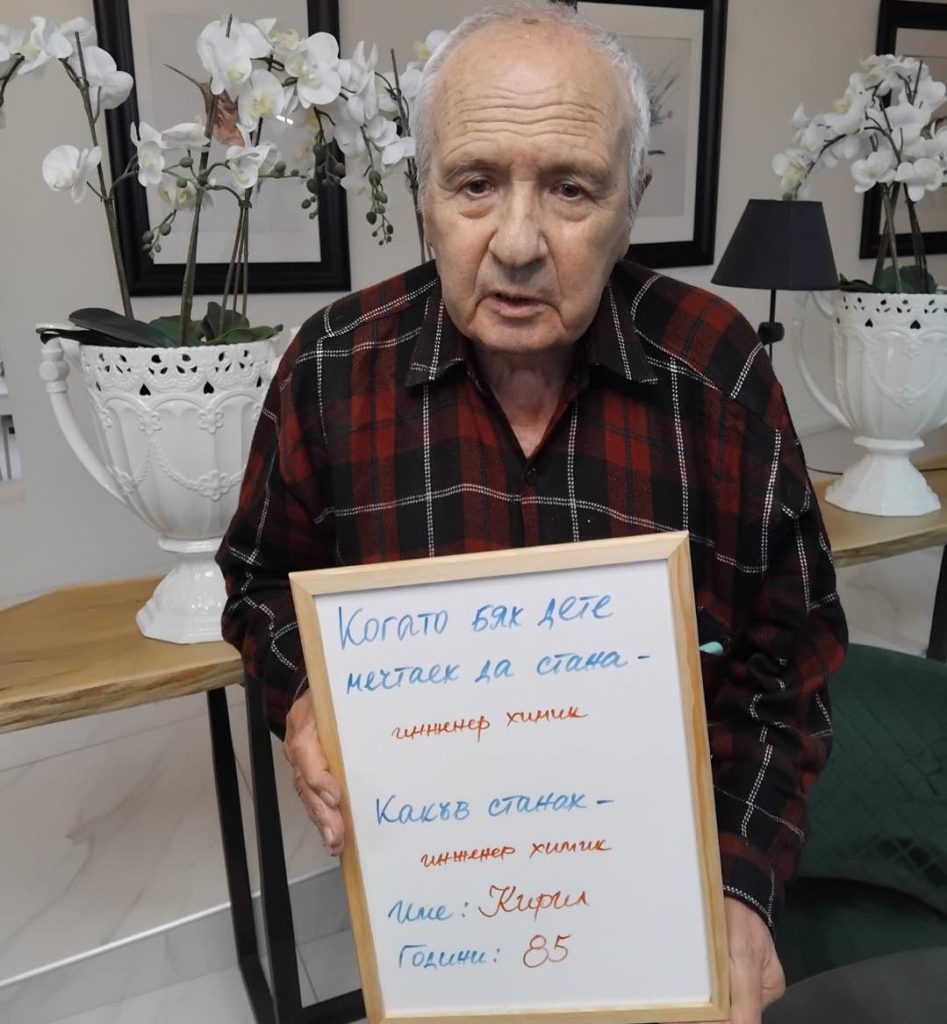 Когато бях дете
мечтаех да стана -
инженер химик
Какъв станах -
инженер химик
Име: Кирил
Години: 85